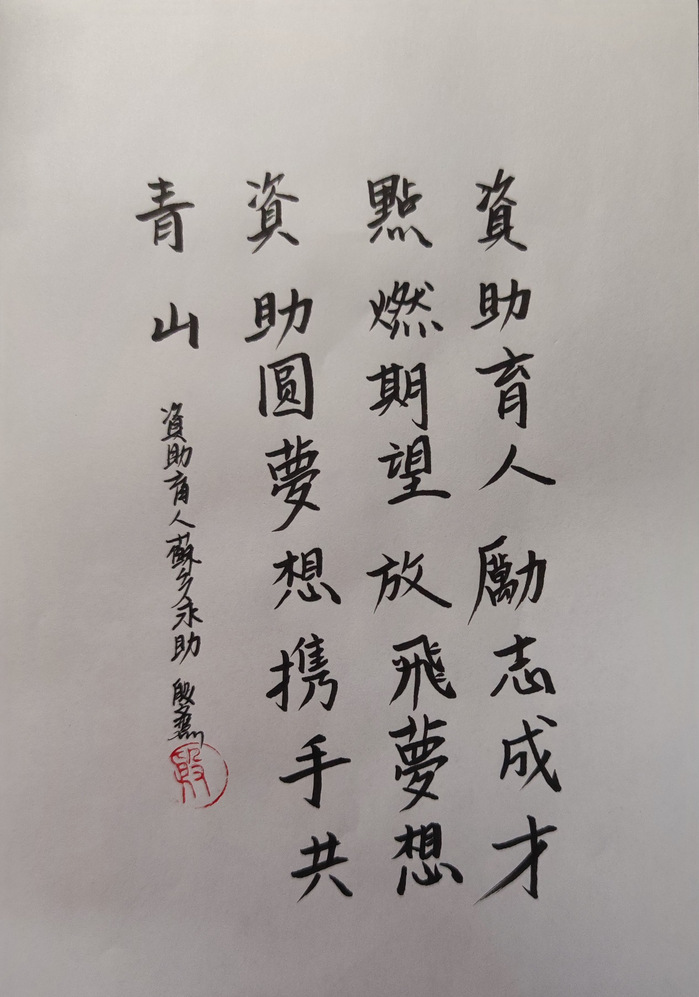 資助育人勵志成才
點燃期望放飛夢想
資助圓夢想携手共
青山
資助育人蘇乡永助 殷燕
殷